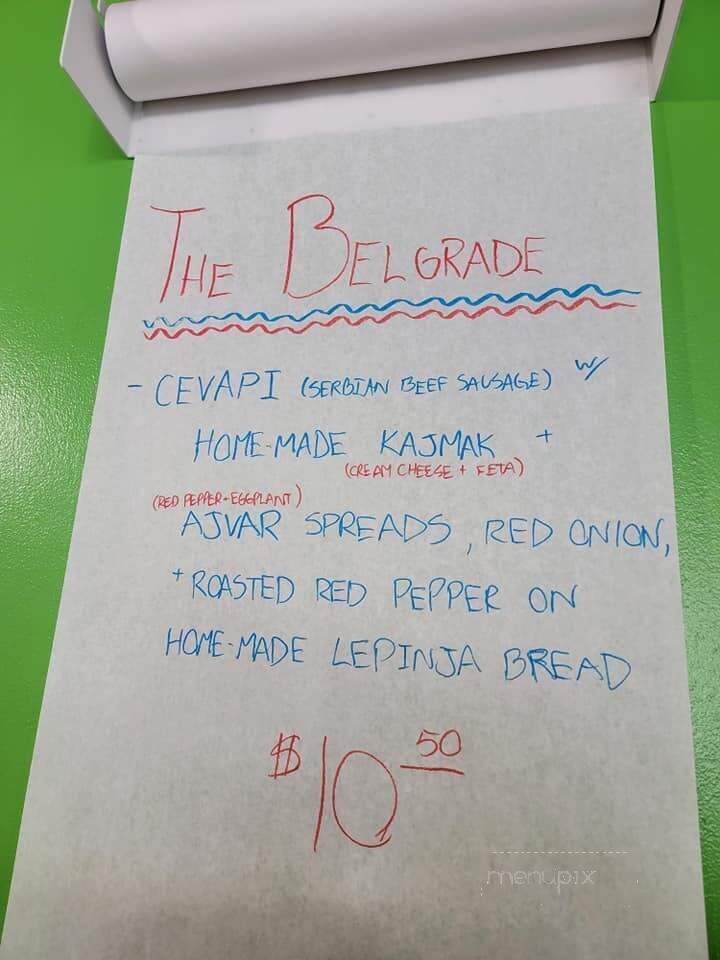 THE BELGRADE
- CEVAPI (SERBIAN BEEF SAUSAGE) W/
HOME-MADE KAJMAK +
(CREAM CHEESE + FETA)
(RED PEPPER + EGGPLANT)
AJVAR SPREADS, RED ONION,
+ ROASTED RED PEPPER ON
HOME-MADE LEPINJA BREAD
$10 50
menupix